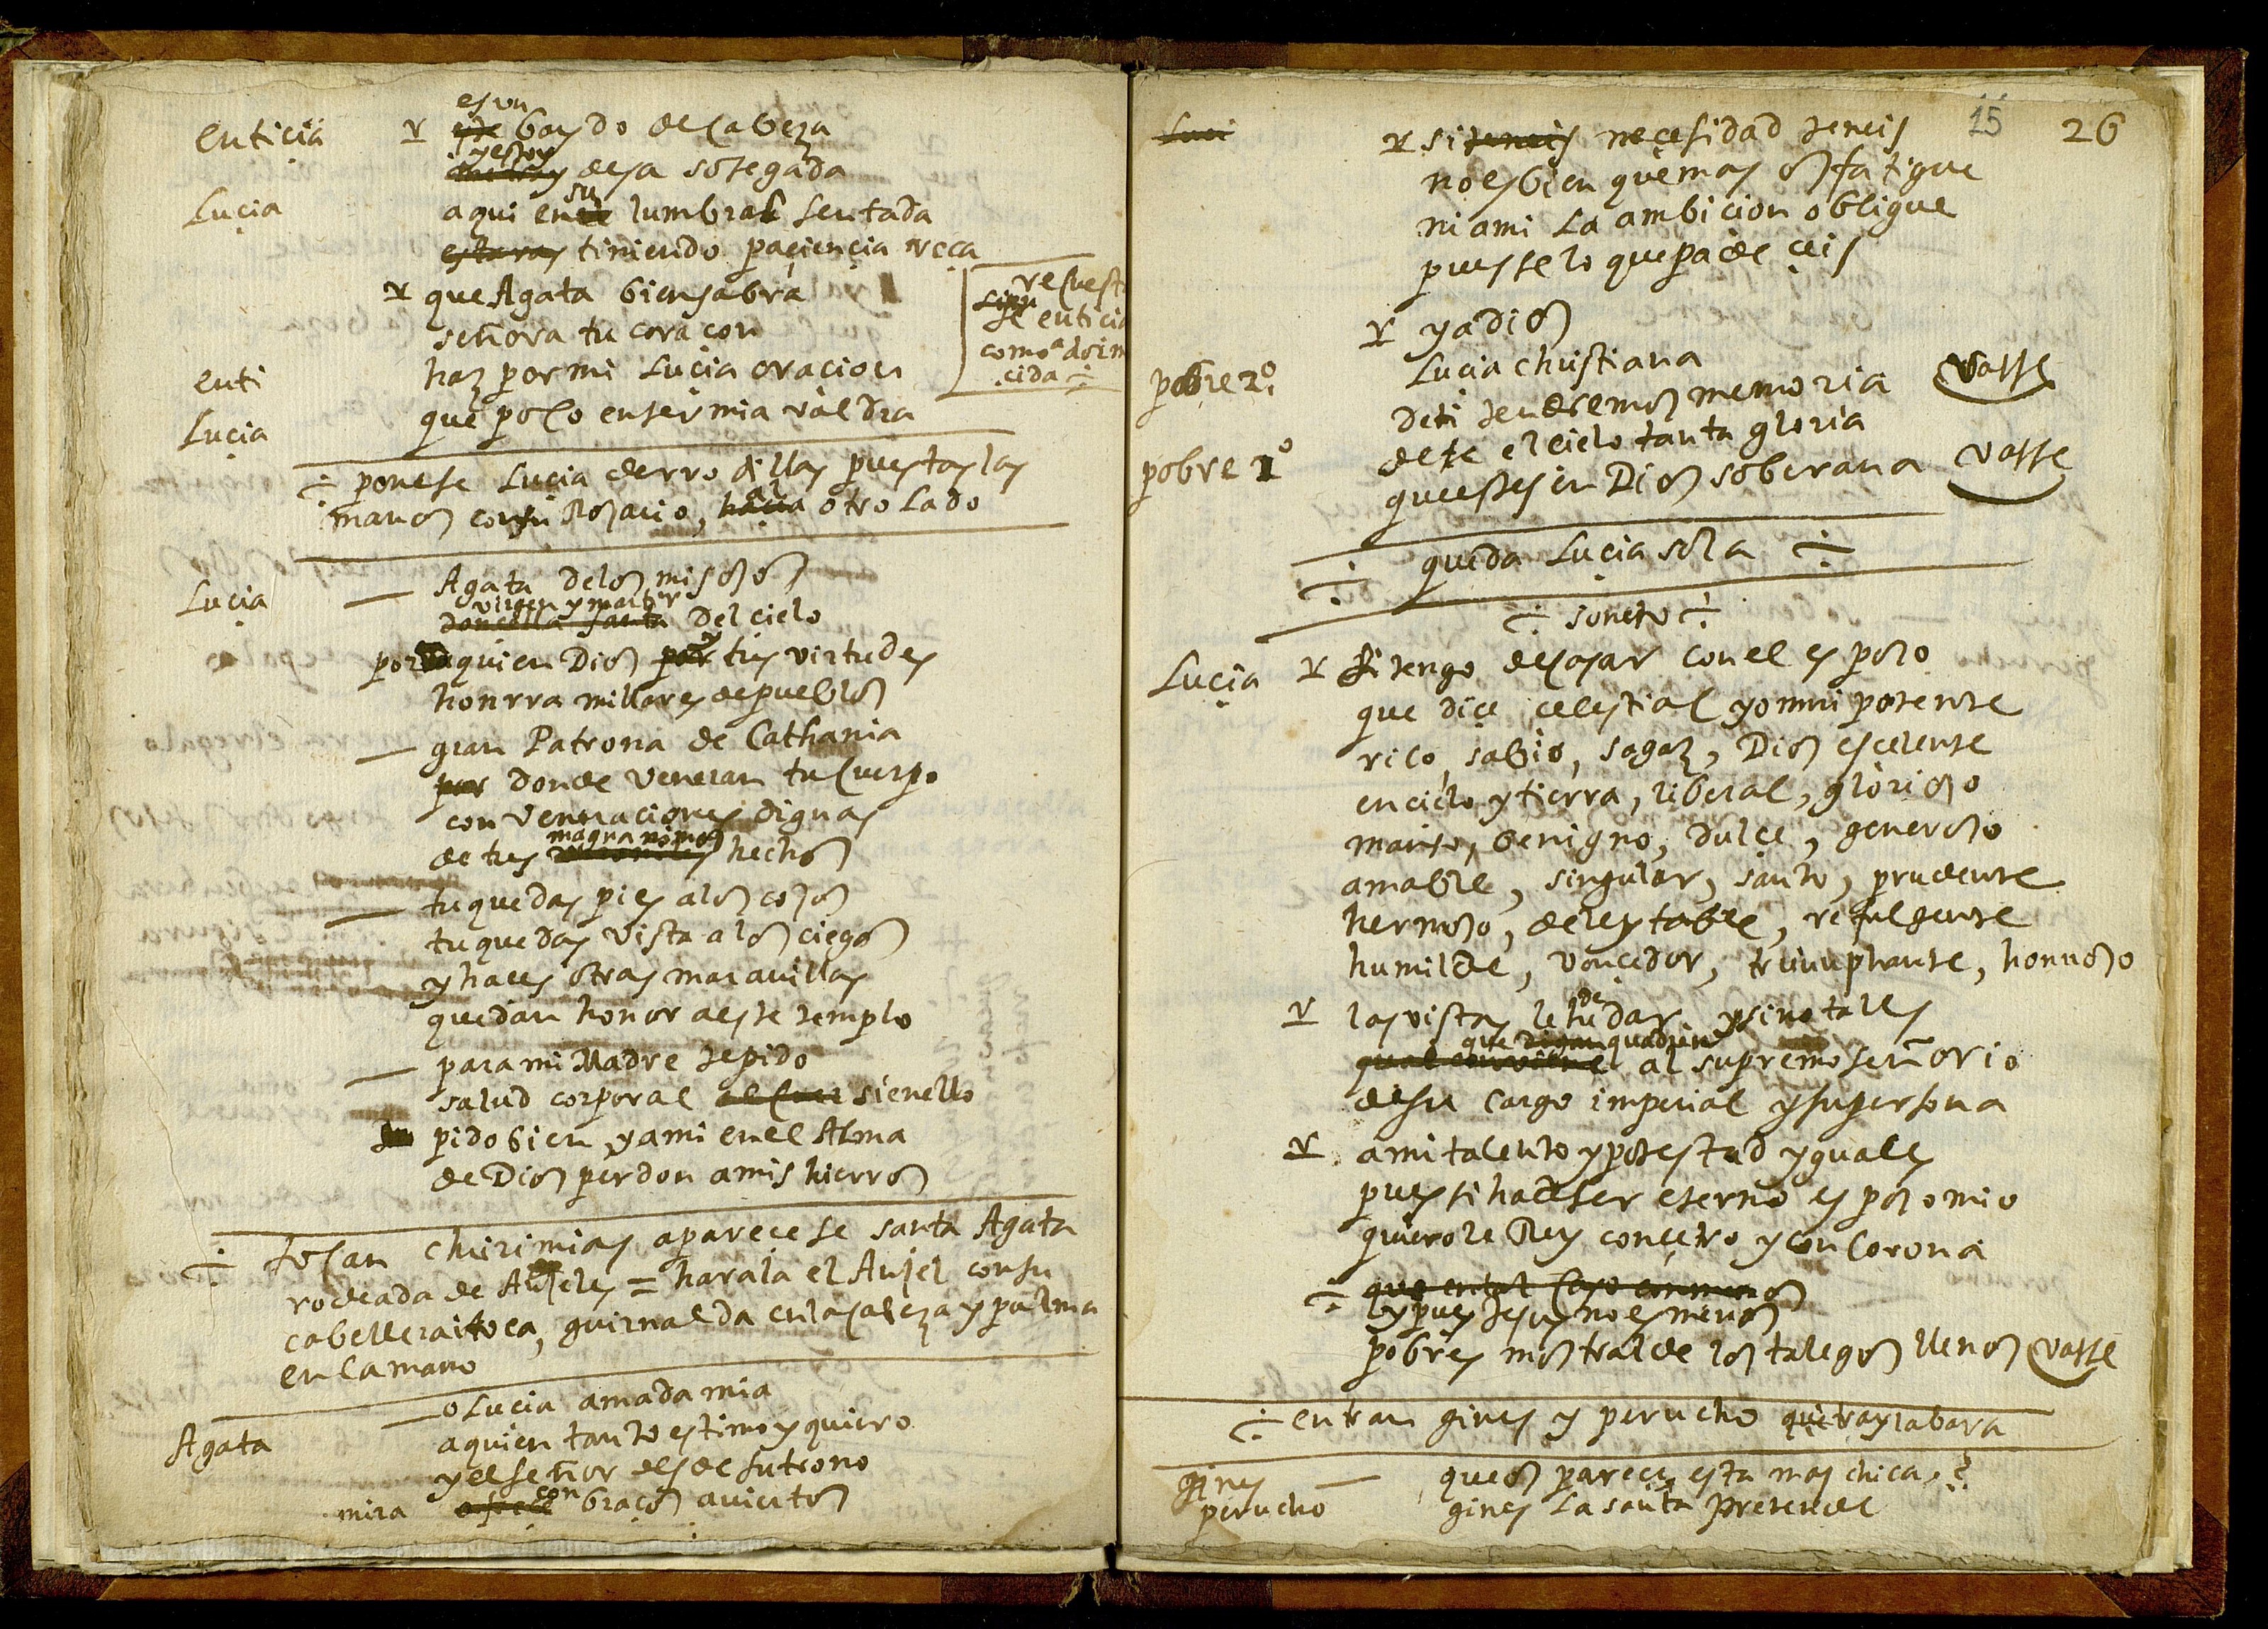 enticia
es un
este baydo de cabeza
y estoy
desa sosegada
Luçia
aqui en su lumbral sentada
estaras tiniendo paçiençia reça
que Agata bien sabrá
señora tu coraçon
enti
haz por mi Luçia oraçion
Luçia
que poco enfermia valdra
recuest
se enticia
como adorm
cida
ponese Luçia derrodillas puestas las
manos con su Rosario, haçia otro Lado
Luçia
Agata delos mis ojos
virgen y martir
doncella santa del cielo
por quien Dios por tus virtudes
honrra millares de pueblos
gran Patrona de Cathania
por donde veneran tu Cuerpo
con veneraciones dignas
magnanimos
de tus hechos
tu que das pies alos cojos
tu que das vista alos ciegos
y haces otras maravillas
que dan honor aeste templo
para mi Madre te pido
salud corporal si enello
pido bien, y ami enel Alma
de Dios perdon amis hierros
tocan chirimias aparecese santa Agata
rodeada de Anjeles = harala el Anjel con su
cabellera i toca, guirnalda en la cabeza y palma
en la mano
Agata
o Lucia amada mia
aquien tanto estimo y quiero
y el señor desde su trono
mira con braços aviertos
15 26
Luci
si teneis necesidad teneis
no es bien que mas os fatigue
ni ami la ambicion obligue
pues se lo que padeçeis
y adios
pobre 2º
Lucia christiana
de ti tendremos memoria vasse
pobre 1º
dete el cielo tanta gloria
que estes en Dios soberana vasse
queda Luçia sola
soneto
Luçia
si tengo de casar con el esposo
que diçe celestial y omnipotente
rico, sabio, sagaz, Dios escelente
en cielo y tierra, liberal, glorioso
manso, benigno, dulçe, generoso
amable, singular, santo, prudente
hermoso, deleytable, refulgente
humilde, vencedor, triumphante, honrroso
las vistas le he de dar, y sino tales
que digan quadren
qual conviene al supremo señorio
de su cargo imperial y su persona
ami talento y potestad yguales
pues si ha de ser eterno esposo mio
quierole Rey con çetro y con Corona
que en tal caso en menos
y pues Jesus no es menos
pobres mostralde los talegos llenos vasse
entran gines y perucho que tray la bara
gines
que os parece esta mas chica?
perucho
gines La santa pretende